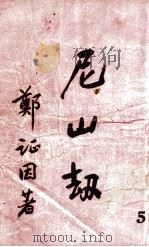 尼山劫
鄭証因著
5
mtoou.info